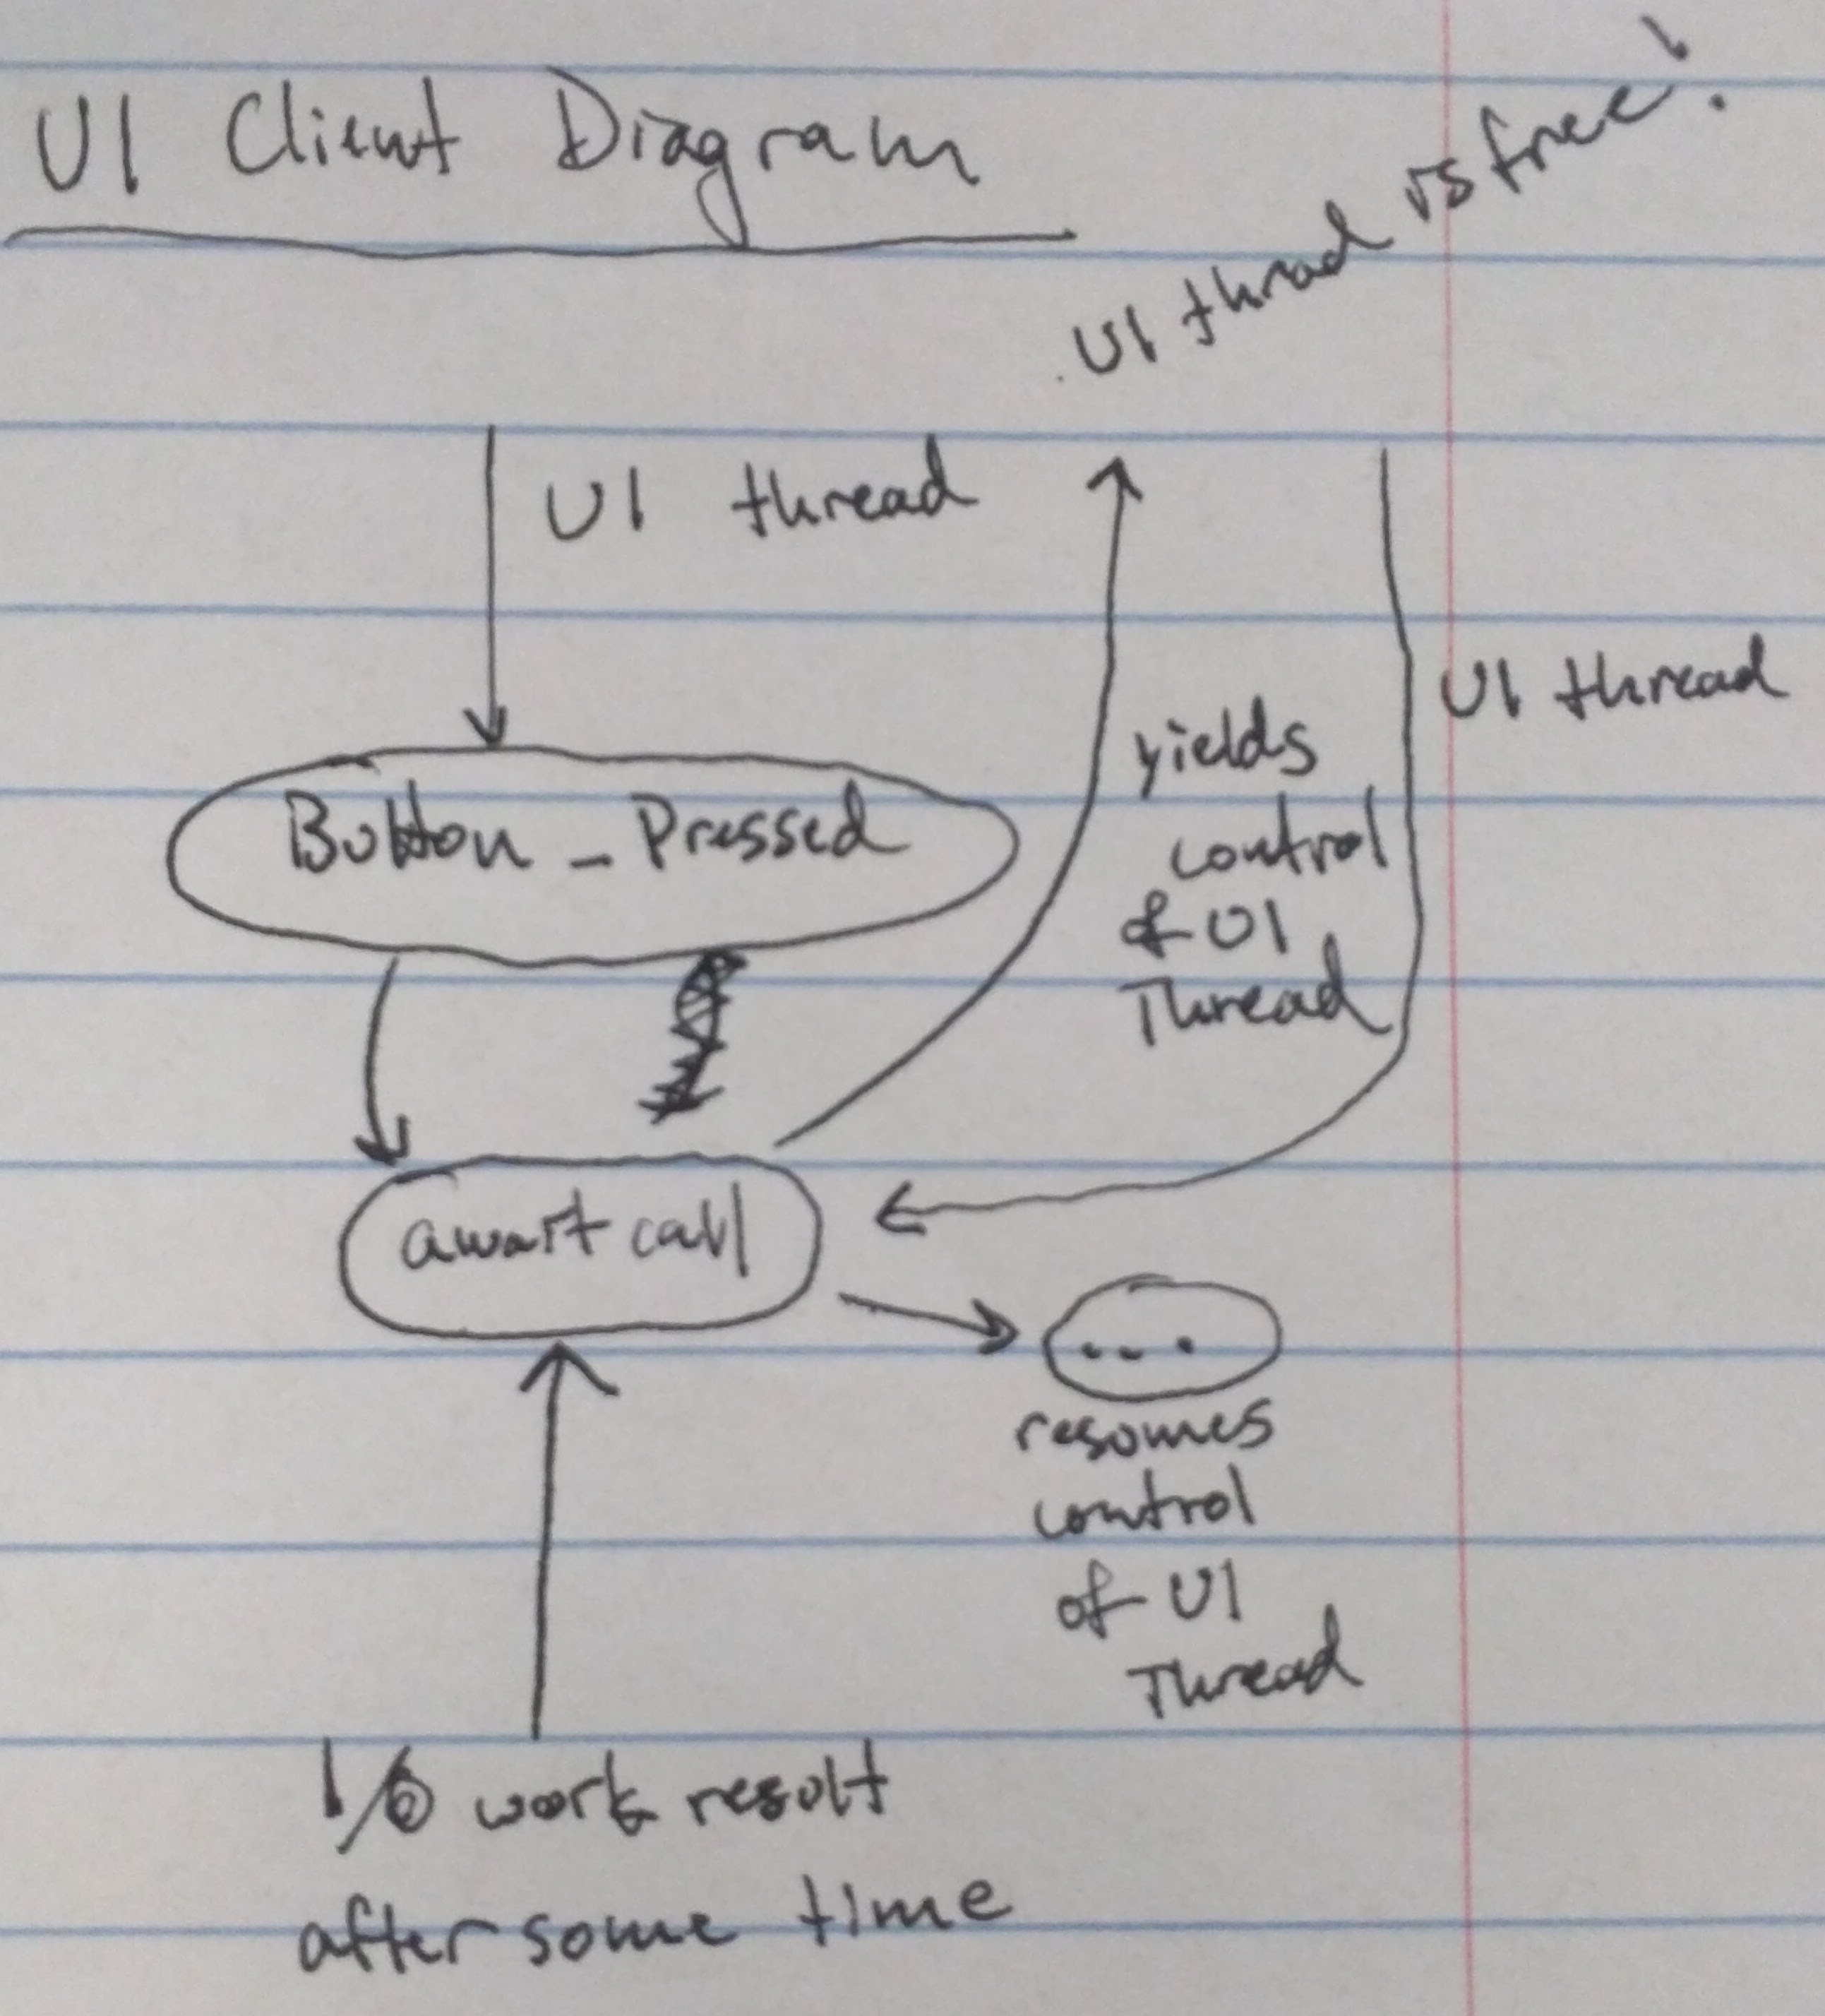 UI Client Diagram
UI thread is free!
UI thread
UI thread
Button_Pressed
yields
control
of UI
Thread
await call
....
resumes
control
of UI
Thread
I/O work result
after some time